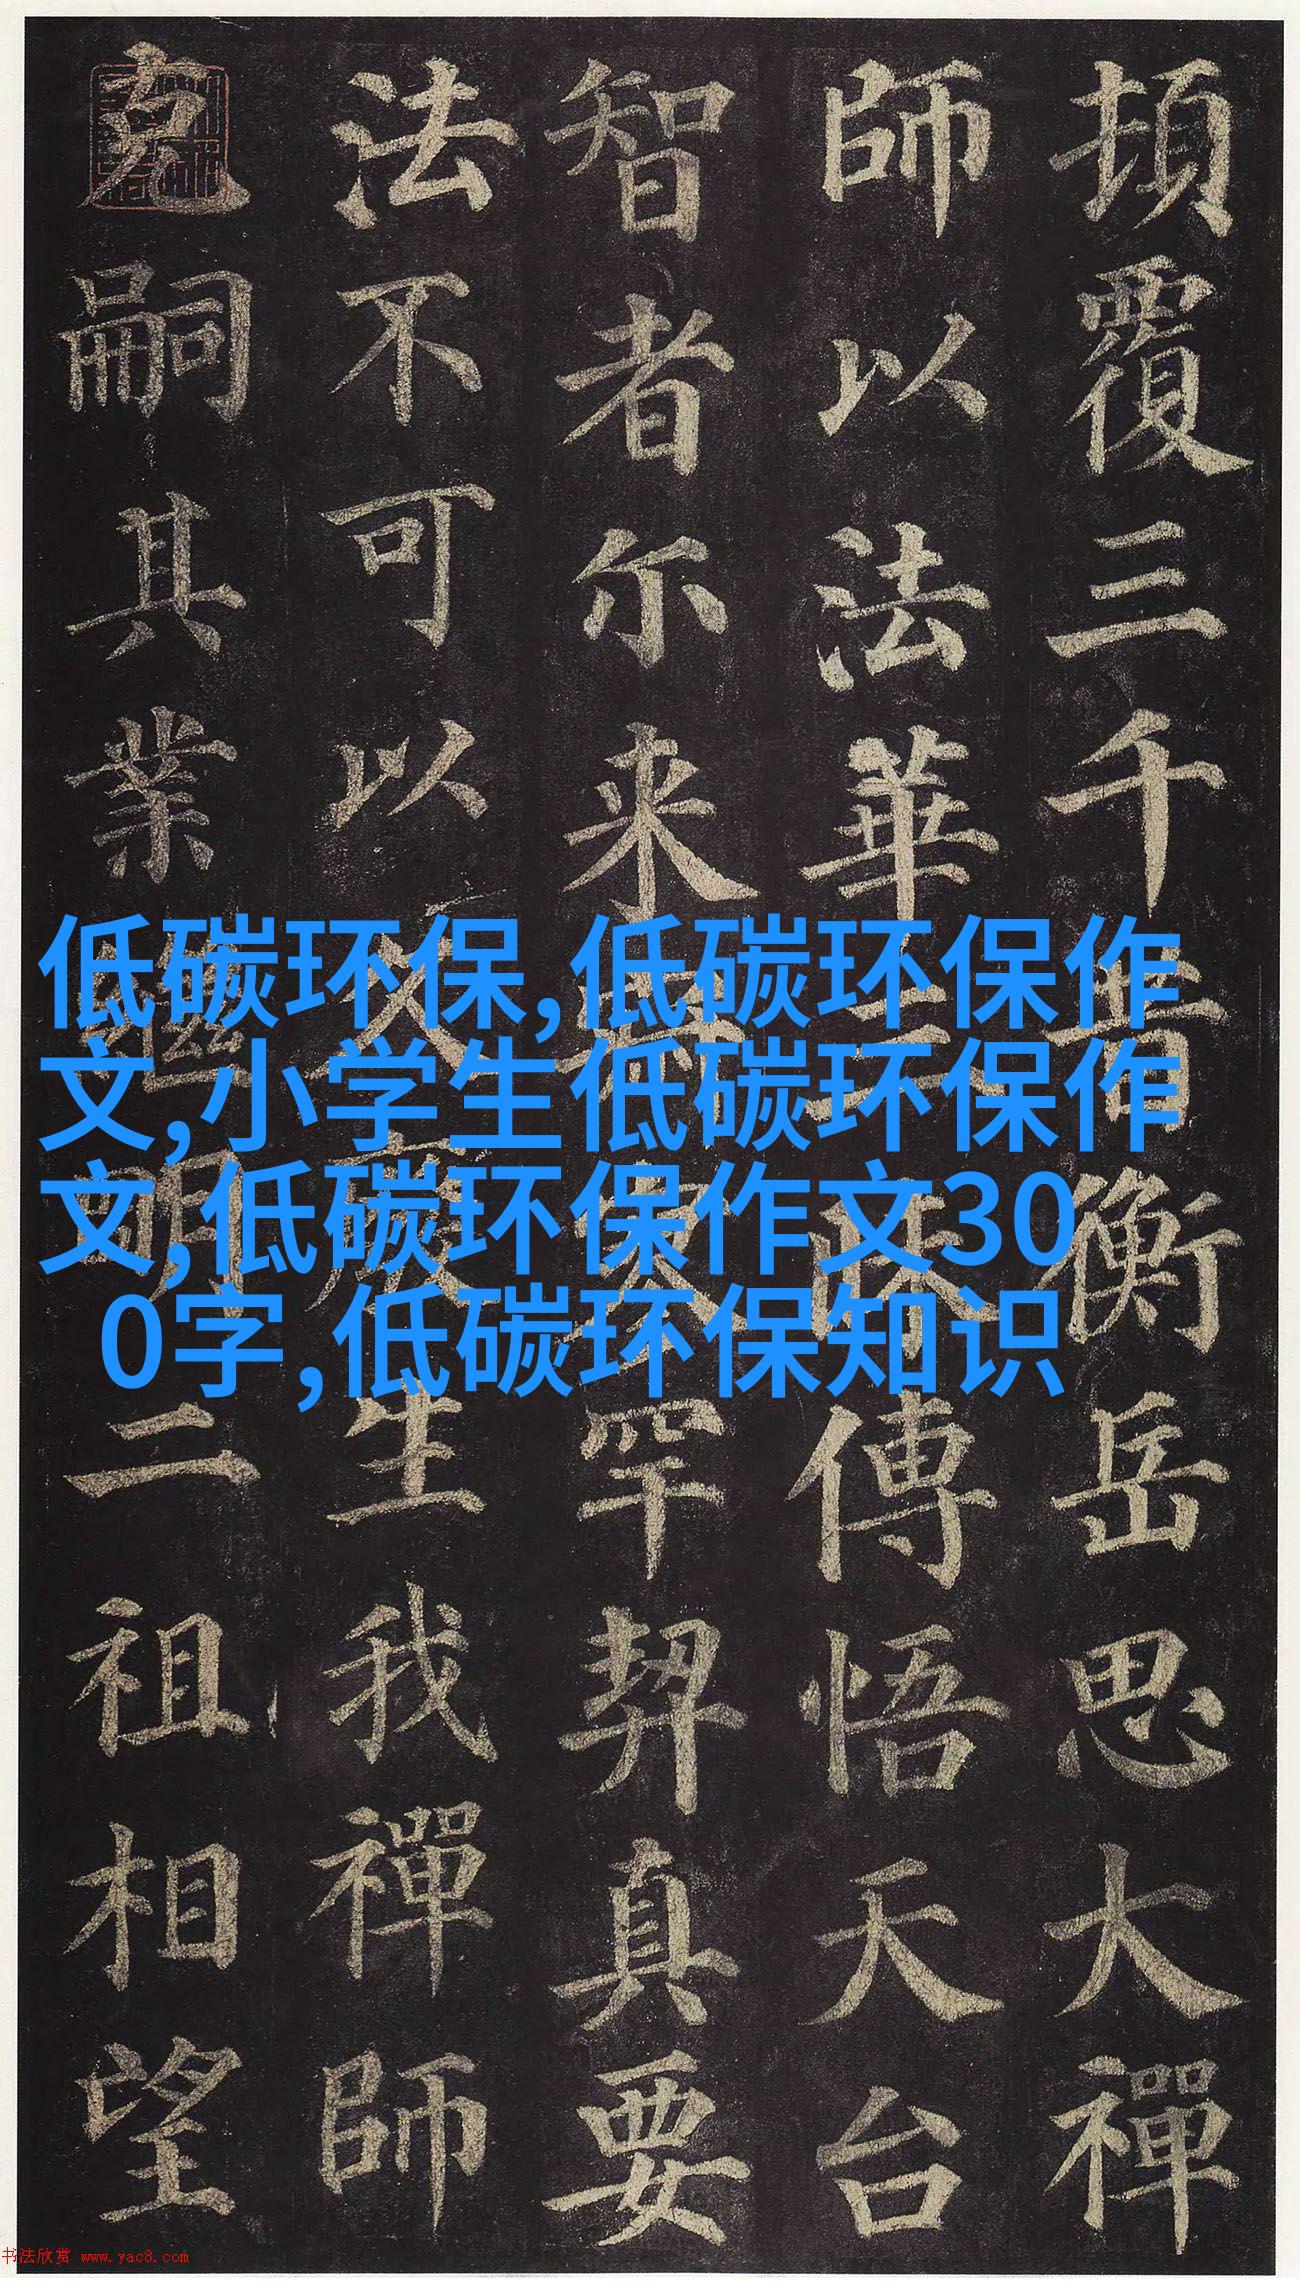 頂覆三千昔衡岳思大禪
師以法華三昧傳悟天台
智者尓来寂寥罕契真要
法不可以久廢生我禪師
克嗣其業継明二祖相望
低碳环保,低碳环保作
文,小学生低碳环保作
文,低碳环保作文30
0字,低碳环保知识
书法欣赏 www.yac8.com